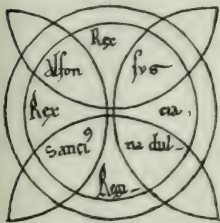 Rex
Alfon sus
Rex cia.
Sanciꝰ na dul-
Regn-